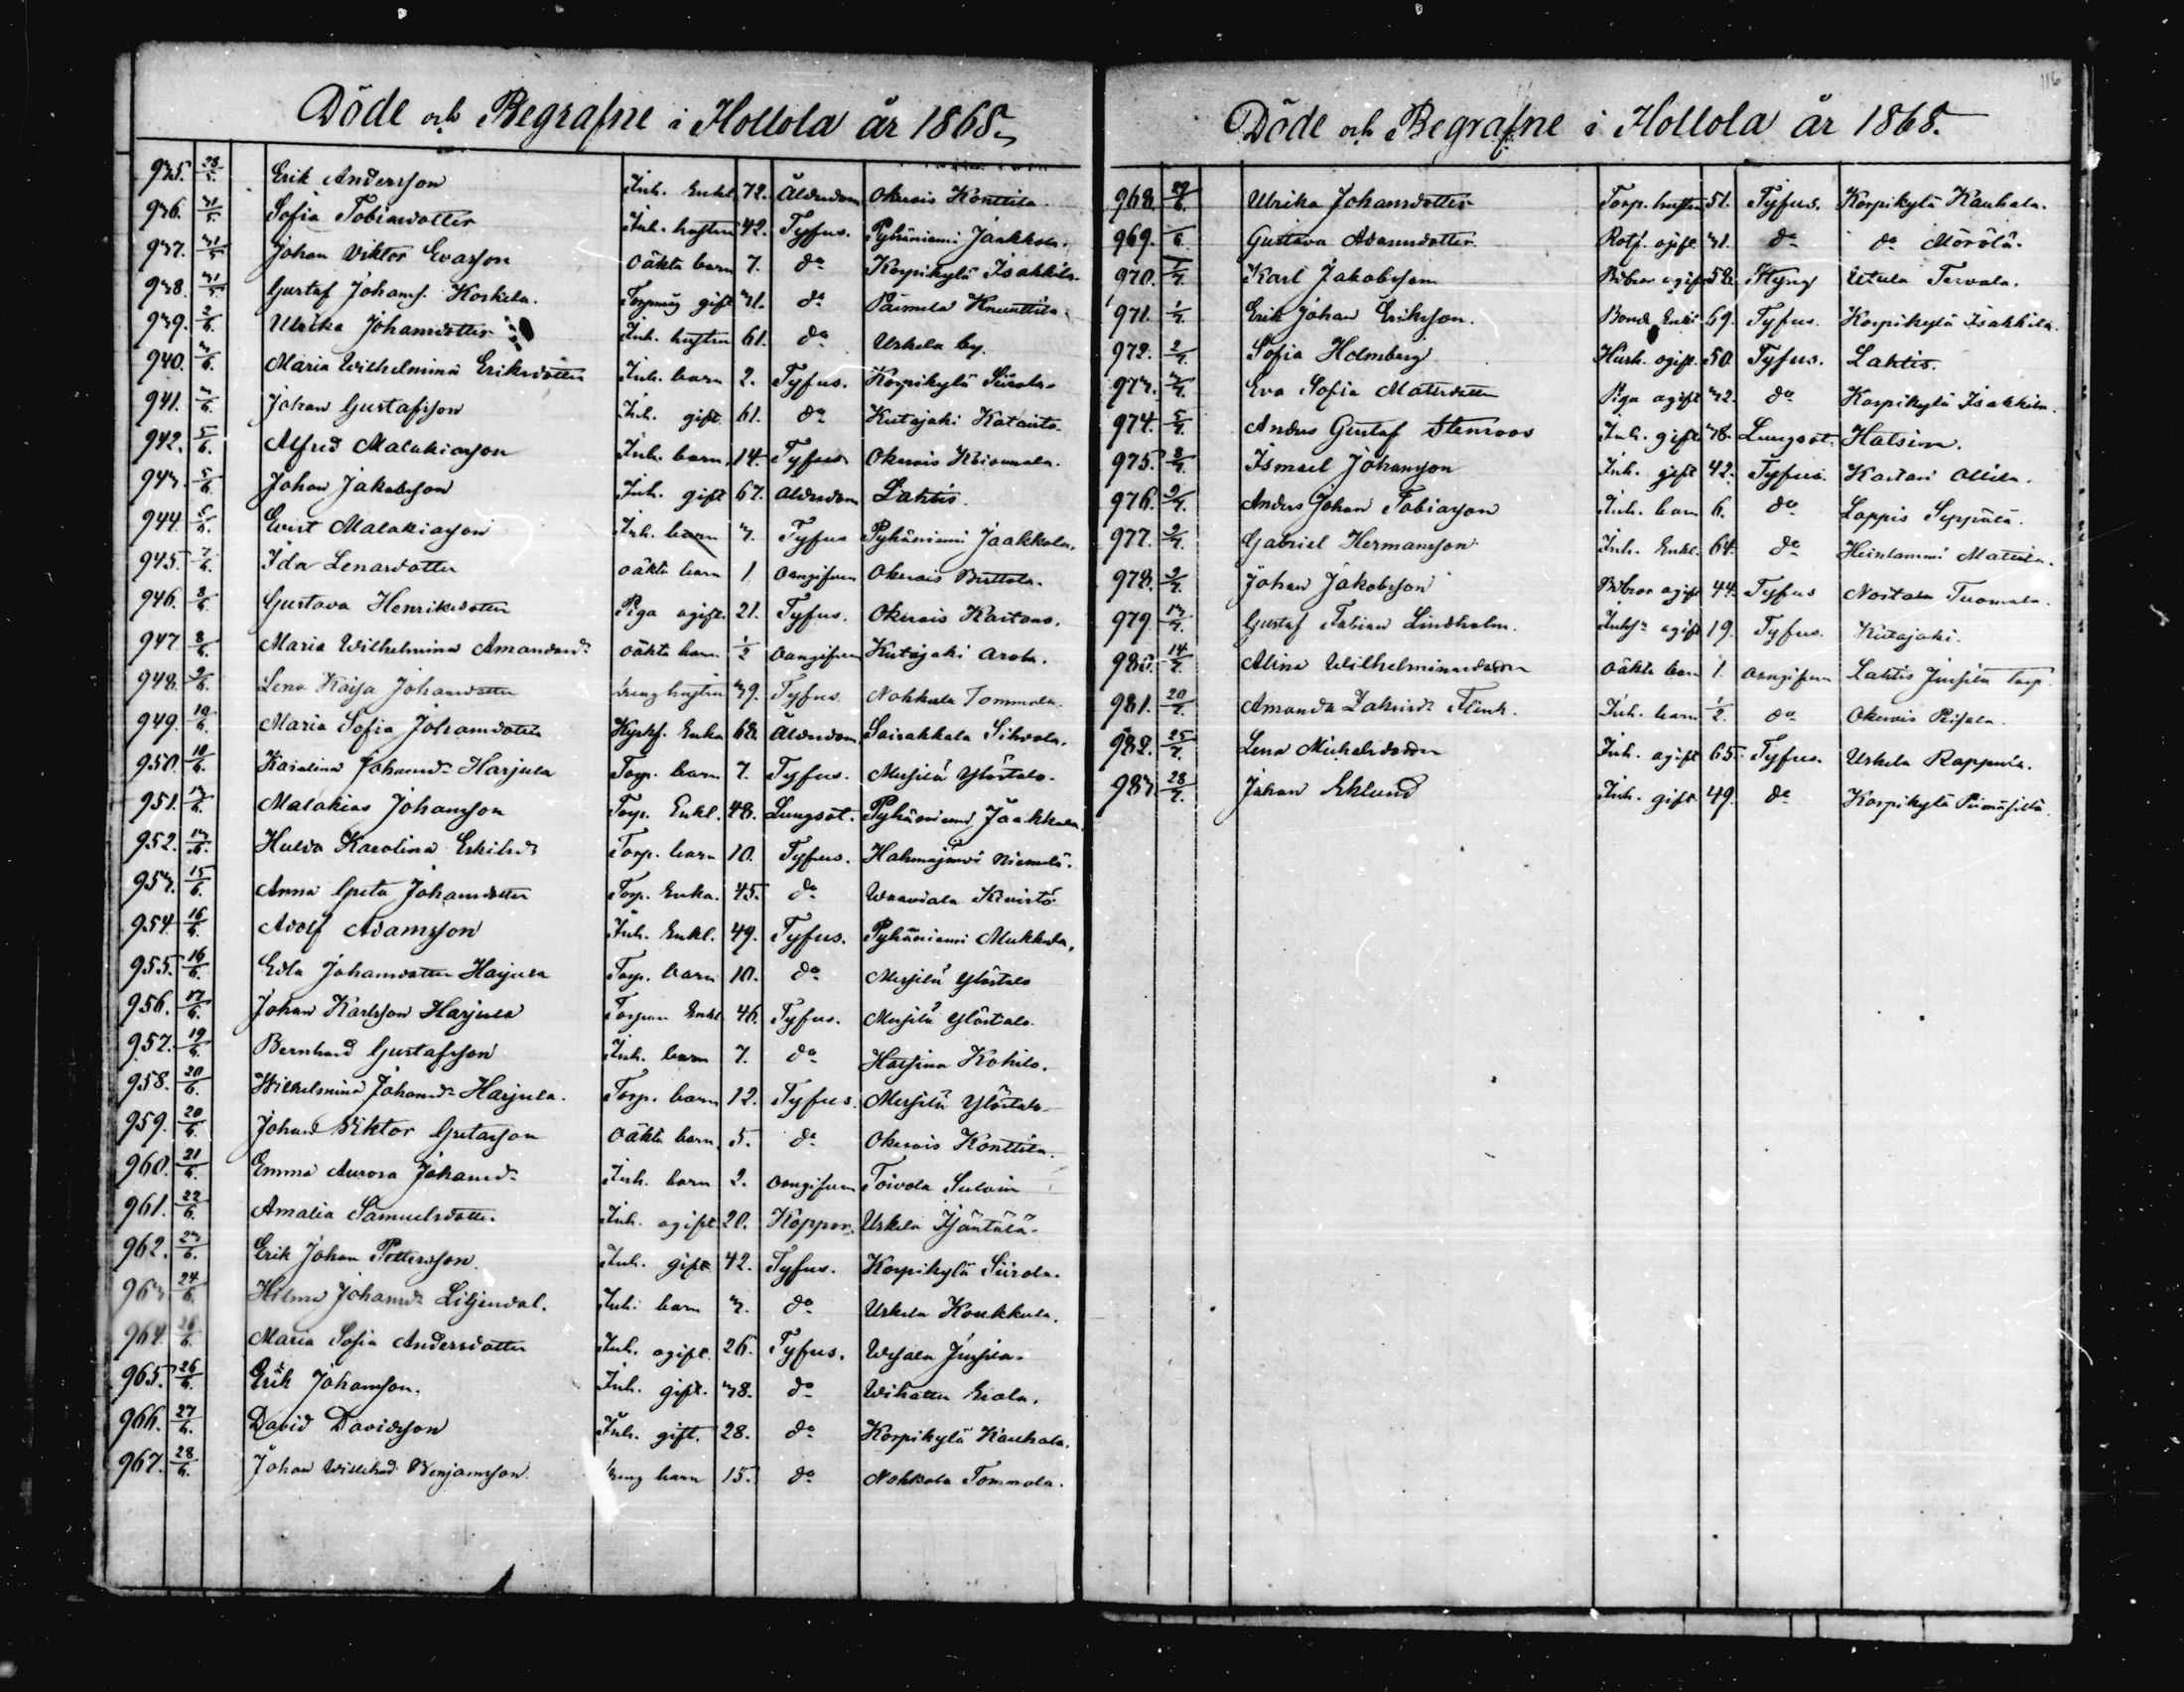 Döde och Begrafne i Hollola år 1868.
935. 28/5. Erik Andersson Inh. Enkl. 72. Ålderdom Okerois Konttila.
936. 31/5. Sofia Tobiasdotter Inh. hustru 42. Tyfus. Pyhäniemi Jaakkola.
937. 31/5 Johan Viktor Evasson oäkta barn 7. do Korpikylä Isakkila.
938. 31/5 Gustaf Johans. Koskela. Torpmåg gift 31. do Paimela Knuuttila.
939. 2/6. Ulrika Johansdotter Inh. hustru 61. do Uskela by.
940. 3/6. Maria Wilhelmina Eriksdotter Inh. barn 2. Tyfus. Korpikylä Siirola.
941. 3/6. Johan Gustafsson Inh. gift. 61. do Kutajoki Kataisto.
942. 5/6. Alfred Malakiasson Inh. barn 14. Tyfus Okerois
943. 5/6. Johan Jakobsson Inh. gift 67. Ålderdom Lahtis.
944. 5/6. Evert Malakiasson Inh. barn 3. Tyfus Pyhäniemi Jaakkola.
945. 7/6. Ida Lenasdotter oäkta barn 1 oangifven Okerois Perttola.
946. 8/6. Gustava Henriksdotter Piga ogift. 21. Tyfus. Okerois Kastari.
947. 8/6. Maria Wilhelmina Amandasd. oäkta barn 1/2 oangifven Kutajoki Arola.
948. 9/6. Lena Kaisa Johansdotter dreng hustru 39. Tyfus. Nokkola Tommola.
949. 10/6 Maria Sofia Johansdotter Hyrkf. Enka 68. Ålderdom. Sairakkala Sihvola.
950. 10/6. Karolina Johansd. Harjula Torp. barn 7. Tyfus. Messilä Ylöstalo.
951. 13/6. Malakias Johansson Torp. Enkl. 48. Lungsot. Pyhäniemi Jaakkola.
952. 13/6. Hulda Karolina Eskilsd. Torp. barn 10. Tyfus. Hahmajärvi Niemelä.
953. 15/6. Anna Greta Johansdotter Torp. Enka. 45. do Waaviala Kivistö
954 16/6 Adolf Adamsson Inh. Enkl. 49. Tyfus. Pyhäniemi Mukkula.
955. 16/6. Edla Johansdotter Harjula Torp. barn 10. do Messilä Ylöstalo
956. 17/6. Johan Karlsson Harjula Torpare Enkl 46. Tyfus. Messilä Ylöstalo.
957. 19/6. Bernhard Gustafsson Inh. barn 7. do Hatsina Kokila.
958. 20/6. Wilhelmina Johansd. Harjula. Torp. barn 12. Tyfus. Messilä Ylöstalo
959. 20/6. Johan Viktor Gretasson oäkta barn 5. do Okerois Konttila.
960. 21/6. Emma Aurora Johansd. Inh. barn 2. oangifven Toivola Sulvin
961. 22/6. Amalia Samuelsdotter Inh. ogift 20. Koppor. Uskela Tjäntälä.
962. 23/6. Erik Johan Pettersson. Inh. gift 42. Tyfus. Korpikylä Siirola.
963. 24/6. Hilma Johansd. Liljendal. Inh. barn 3. do Uskela Koukkula.
964. 26/6. Maria Sofia Andersdotter Inh. ogift. 26. Tyfus. Wesala Jussila.
965. 26/6. Erik Johansson. Inh. gift. 38. do Eiola.
966. 27/6. David Davidsson Inh. gift. 28. do Korpikylä Kauhala.
967. 28/6. Johan Willehad Benjamsson dreng barn 15. do Nokkola Tommola.
116
Döde och Begrafne i Hollola år 1868.
968. 29/6. Ulrika Johansdotter Torp. hustru 51. Tyfus. Korpikylä Kauhala.
969. 6. Gustava Adamsdotter Rotf. ogift 31. do do Mörölä.
970. 1/7. Karl Jakobsson Bdbror ogift 58. Styng Utula Tervala.
971. 1/7. Erik Johan Eriksson. Bonde Enkl. 69. Tyfus. Korpikylä Isakkila.
972. 2/7. Sofia Holmberg Hush. ogift. 50 Tyfus. Lahtis.
973. 3/7. Eva Sofia Matsdotter Piga ogift 32. do Korpikylä Isakkila.
974. 5/7. Anders Gustaf Stenroos Inh. gift 38. Lungsot. Hatsina.
975. 8/7. Ismael Johansson Inh. gift 42. Tyfus. Kastari Ollila.
976. 9/7. Anders Johan Tobiasson Inh. barn 6. do Loppis Seppälä.
977. 9/7. Gabriel Hermansson Inh. Enkl. 64. do Heinlammi Mattila.
978. 9/7. Johan Jakobsson Bdbror ogift 44. Tyfus Noitala Tuomala.
979. 13/7. Gustaf Fabian Lindholm. Inhs. ogift 19. Tyfus. Kutajoki.
980. 14/7. Alina Wilhelminasdotter oäkta barn 1. oangifven Lahtis Jussila torp.
981. 20/7. Amanda Flink. Inh. barn 1/2. do Okerois Peisala.
982. 25/7. Lena Michelsdotter Inh. ogift 65. Tyfus. Uskela Rappula.
983. 28/7. Johan Eklund Inh. gift 49. do Korpikylä